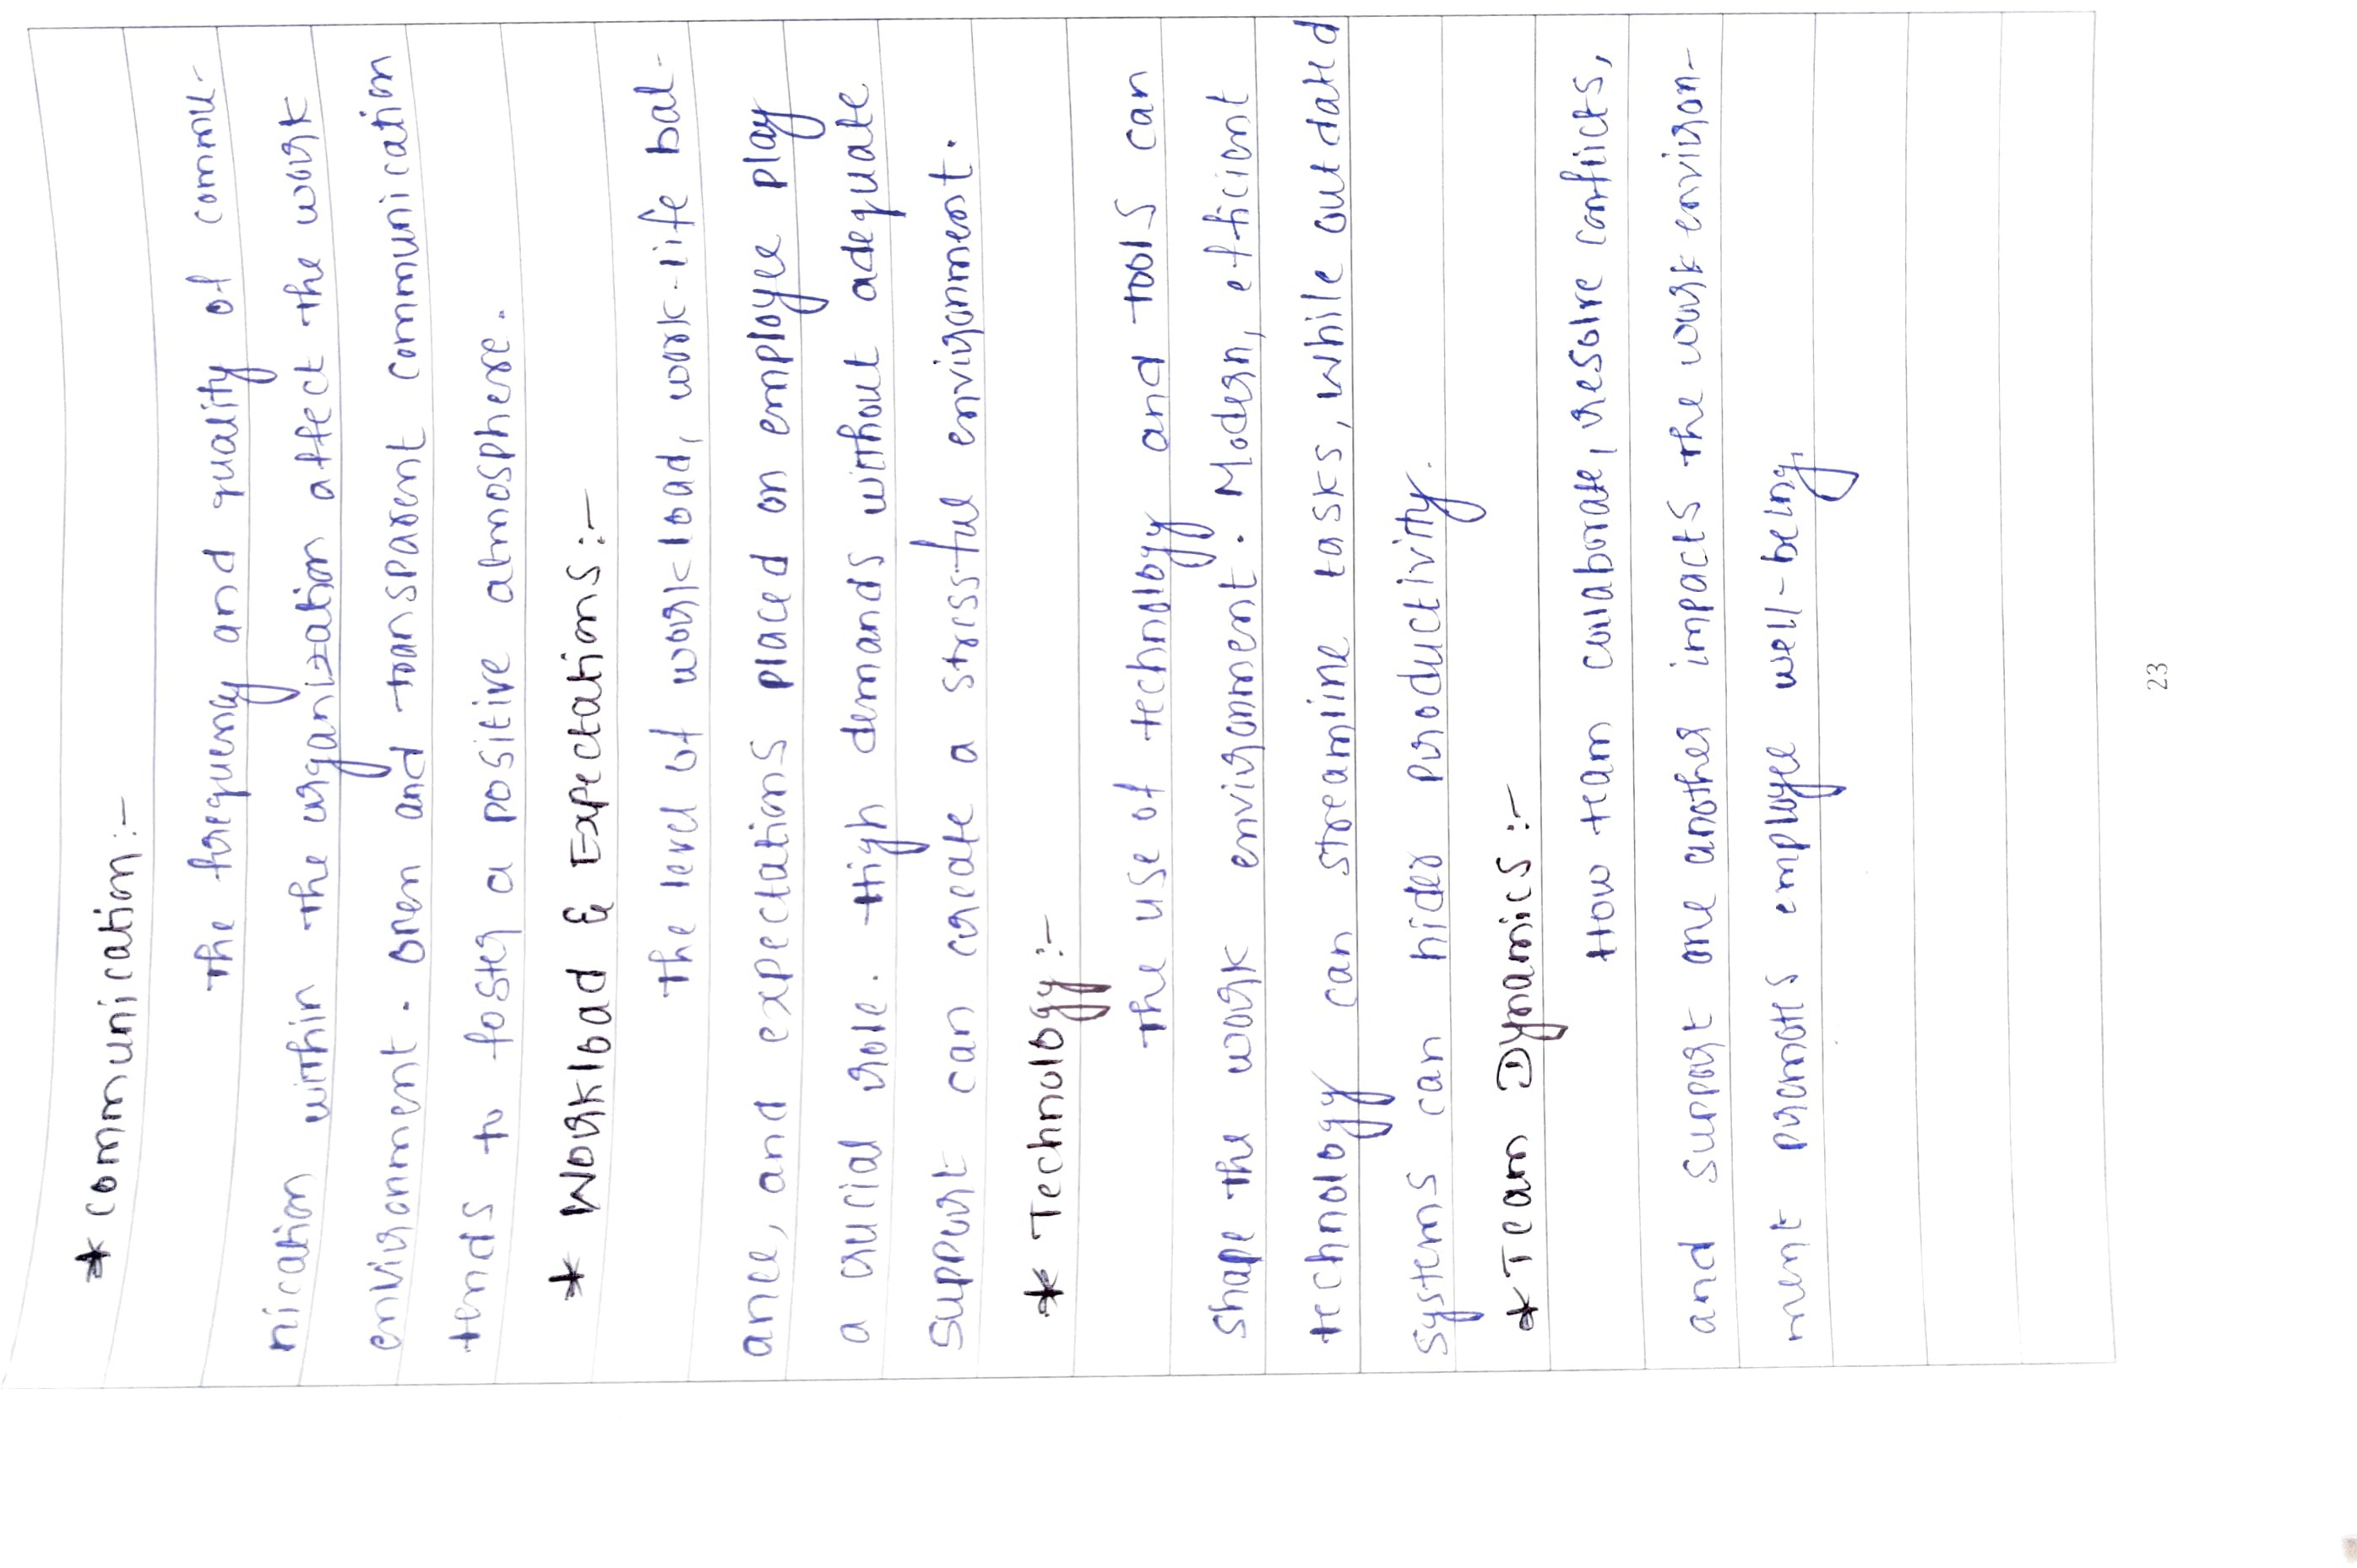 * Communication :-
The frequency and quality of commu-
nication within the organization affect the work
environment. Open and transparent communication
tends to foster a positive atmosphere.
* Workload & Expectations :-
The level of workload, work-life bal-
ance, and expectations placed on employee play
a crucial role. High demands without adequate
support can create a stressful environment.
* Technology :-
The use of technology and tools can
shape the work environment. Modern, efficient
technology can streamline tasks, while outdated
systems can hider productivity.
* Team Dynamics :-
How team collaborate, resolve conflicts,
and support one another impacts the work environ-
ment promotes employee well-being.
23